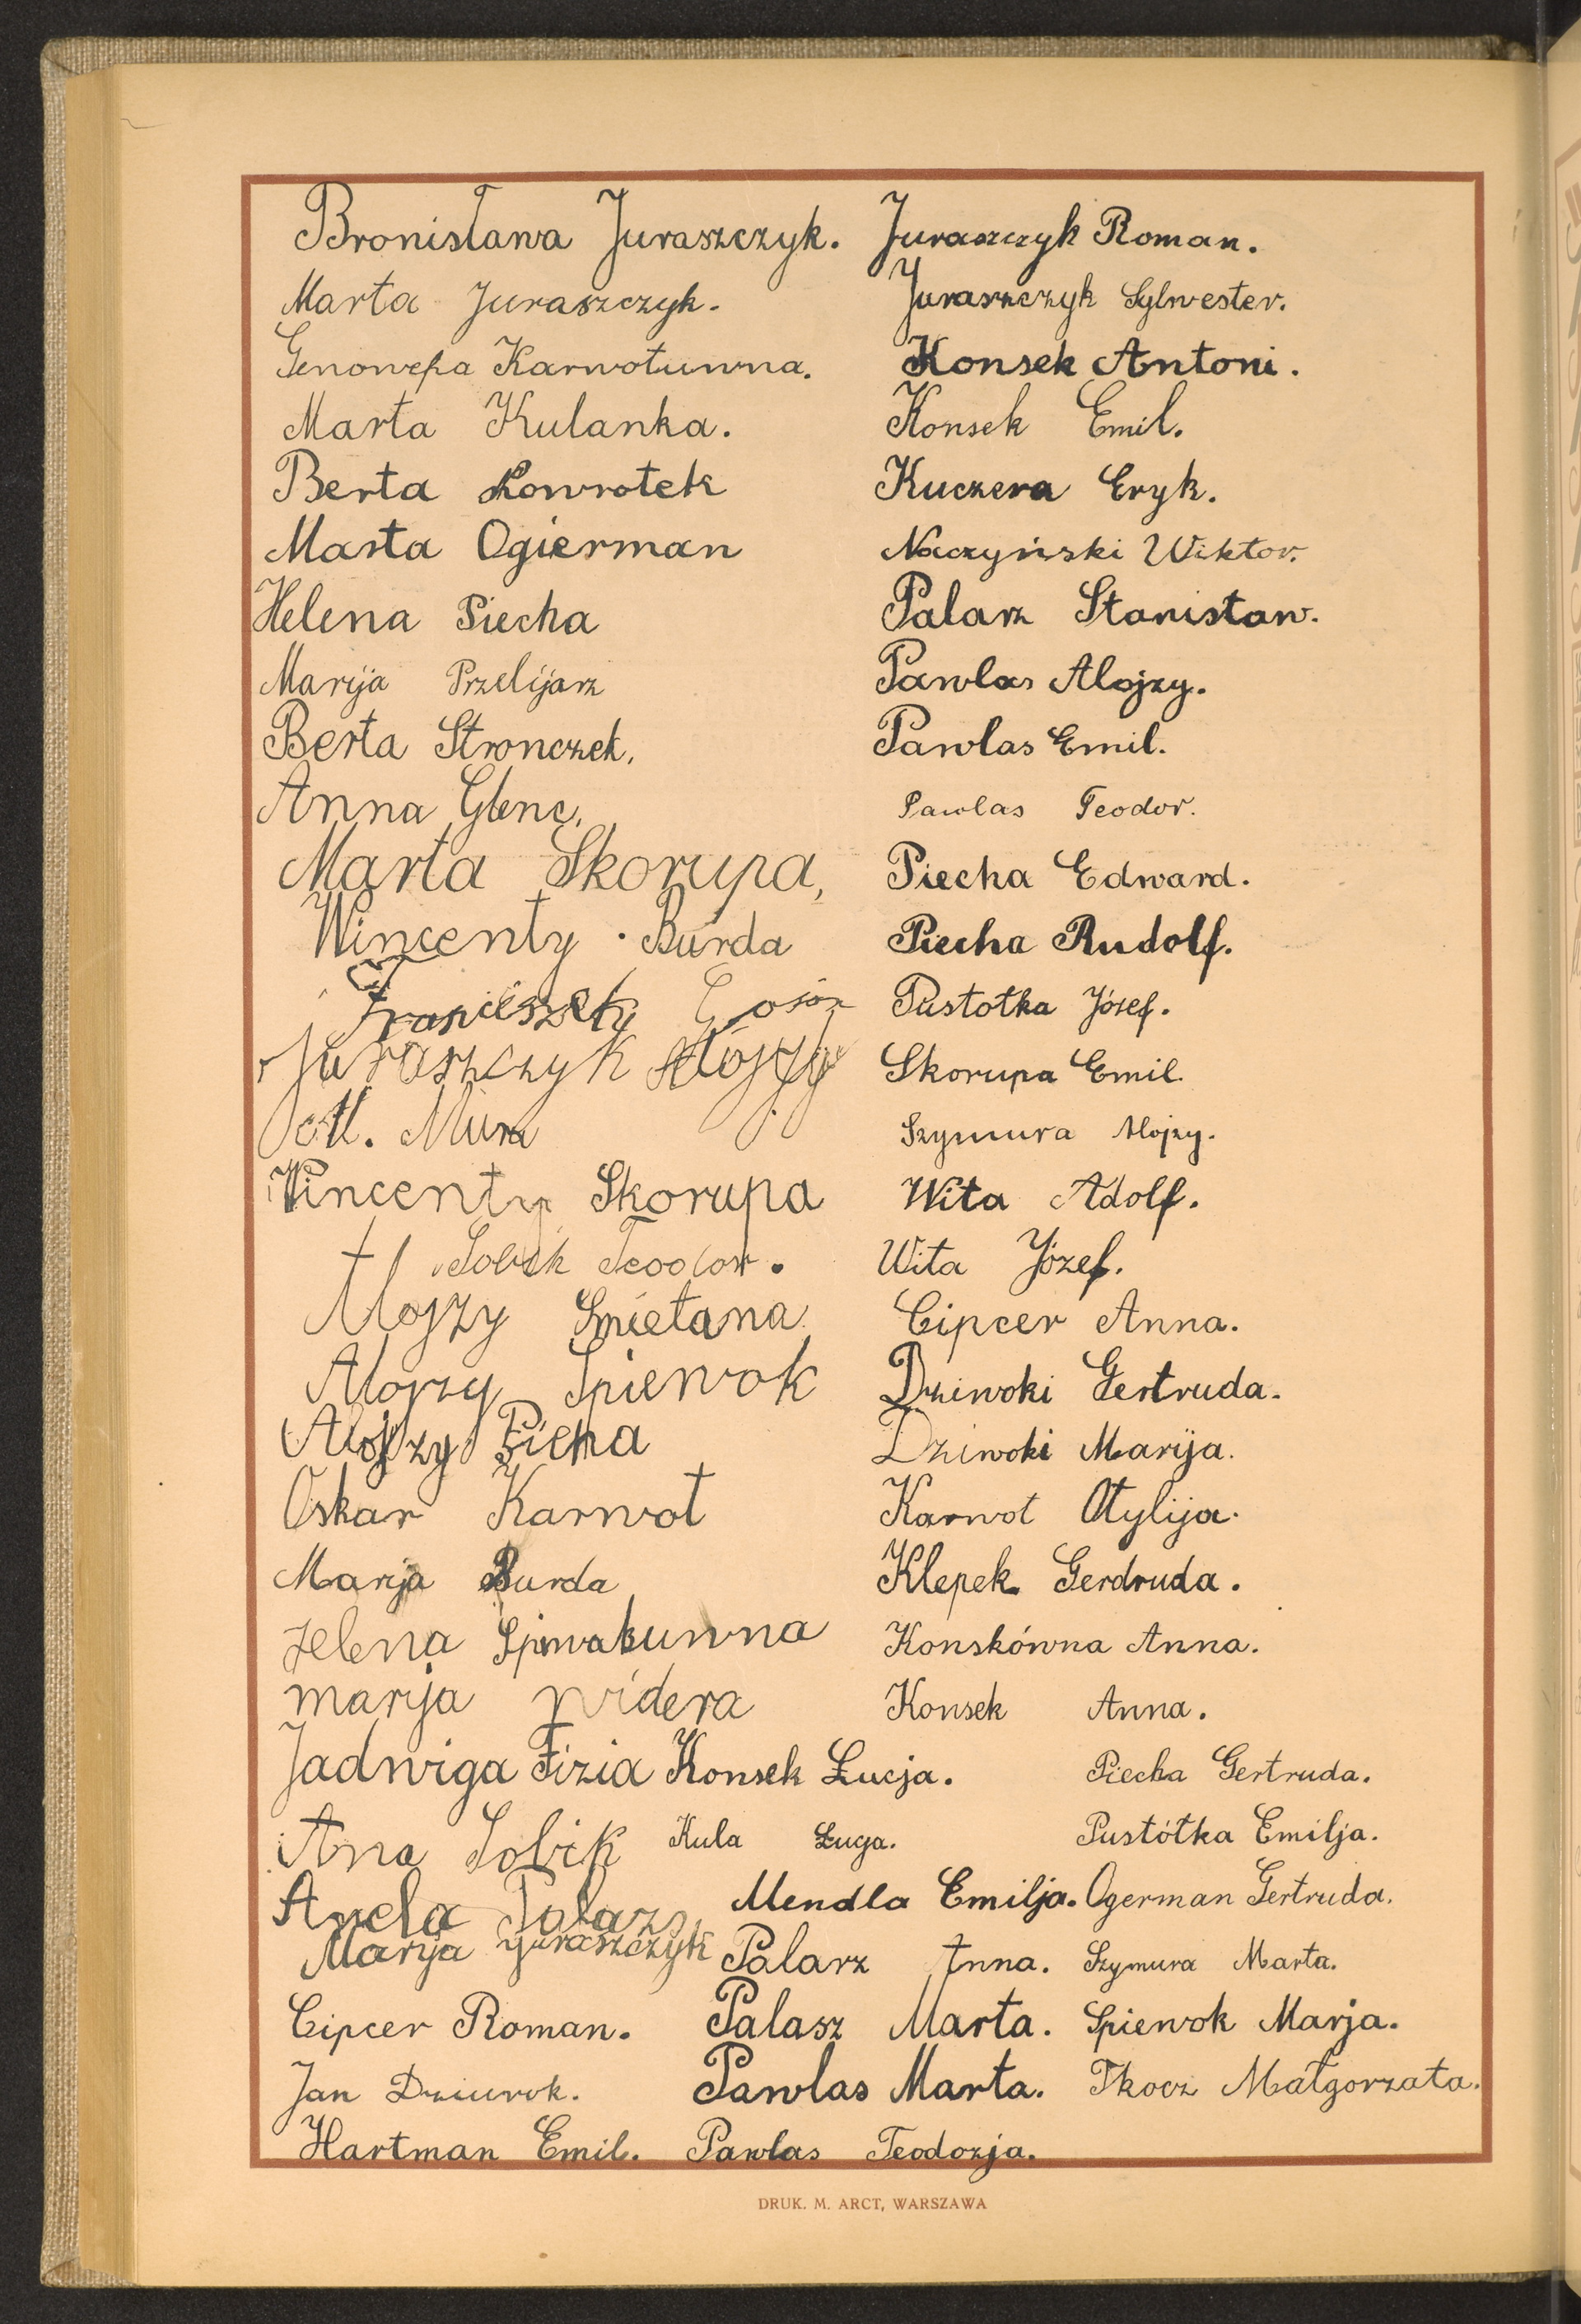 Bronisława Juraszczyk. Juraszczyk Roman.
Marta Juraszczyk. Juraszczyk Sylwester.
Genowefa Karwotuwna. Konsek Antoni.
Marta Kulanka. Konsek Emil.
Berta Kowrotek Kuczera Eryk.
Marta Ogierman Naczyński Wiktor.
Helena Piecha Palarz Stanisław.
Marija Przelijarz Pawlas Alojzy.
Berta Stronczek. Pawlas Emil.
Anna Glenc. Pawlas Teodor.
Marta Skorupa, Piecha Edward.
Wincenty Burda Piecha Rudolf.
Franciszek Pustołka Józef.
Juraszczyk Alojzy Skorupa Emil.
Szymura Alojzy.
Wincenty Skorupa Wita Adolf.
Sobik Teodor. Wita Józef.
Alojzy Smietana Cipcer Anna.
Alojzy Spiewok Dziwoki Gertruda.
Alojzy Piecha Dziwoki Marija.
Oskar Karwot Karwot Otylija.
Marija Burda Klepek Gerdruda.
Helena Konskówna Anna.
marija widera Konsek Anna.
Jadwiga Fizia Konsek Łucja. Piecha Gertruda.
Ana Sobik Kula Łucja. Pustółka Emilja.
Anela Palarz Mendla Emilja. Ogerman Gertruda.
Marija Juraszczyk Palarz Anna. Szymura Marta.
Cipcer Roman. Palasz Marta. Spiewok Marja.
Jan Dziurok. Pawlas Marta. Tkocz Małgorzata.
Hartman Emil. Pawlas Teodozja.
DRUK. M. ARCT, WARSZAWA